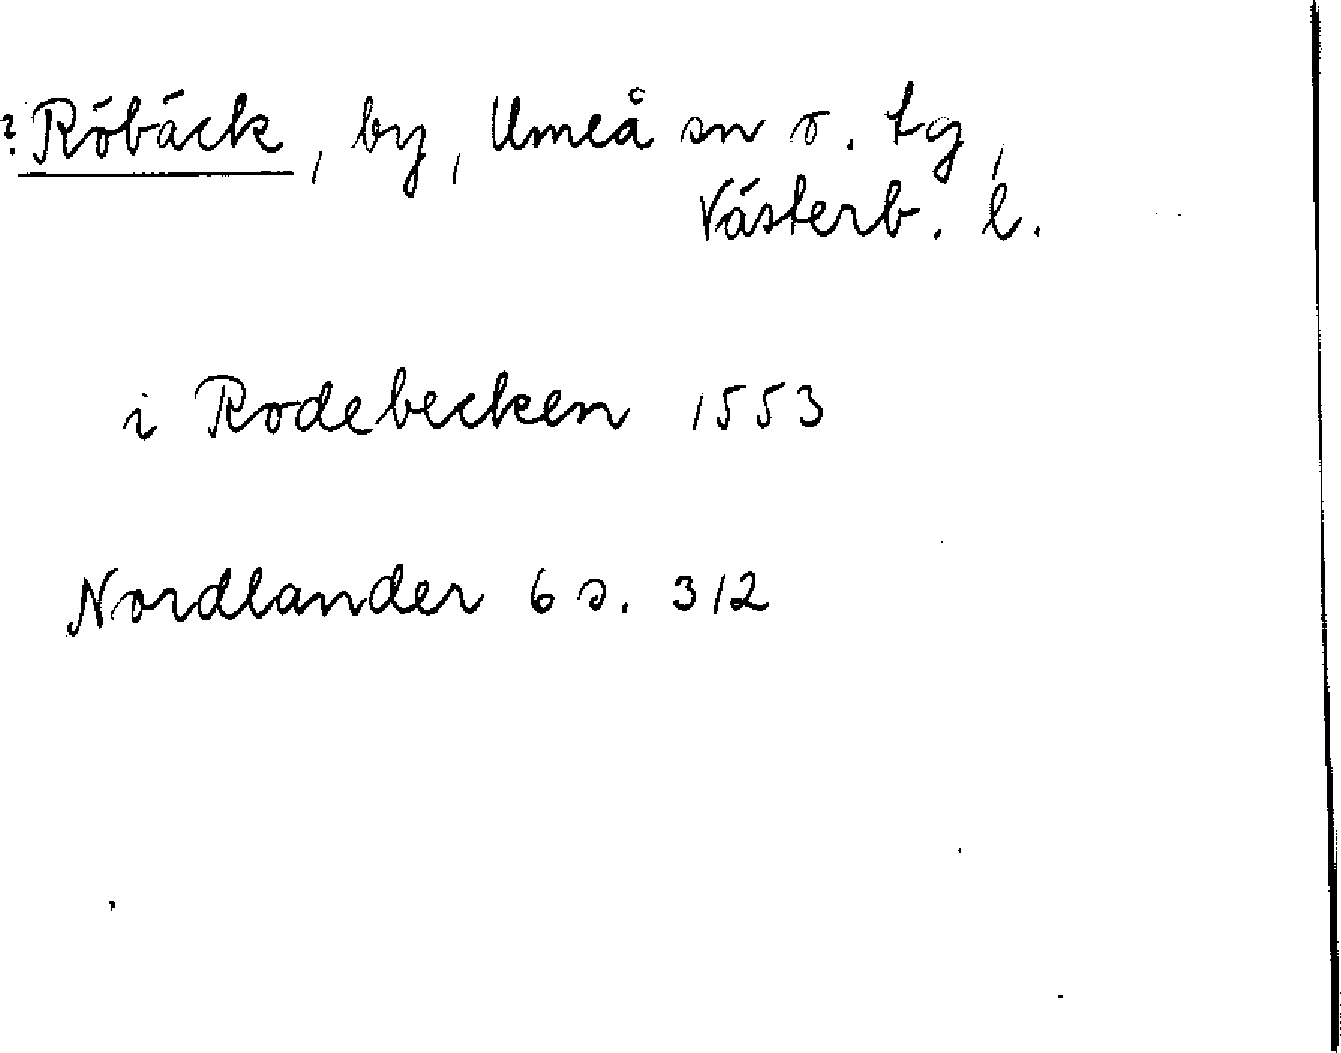 ? Röbäck, by, Umeå sn o. tg,
Västerb. l.
i Rodebecken 1553
Nordlander 6 s. 312